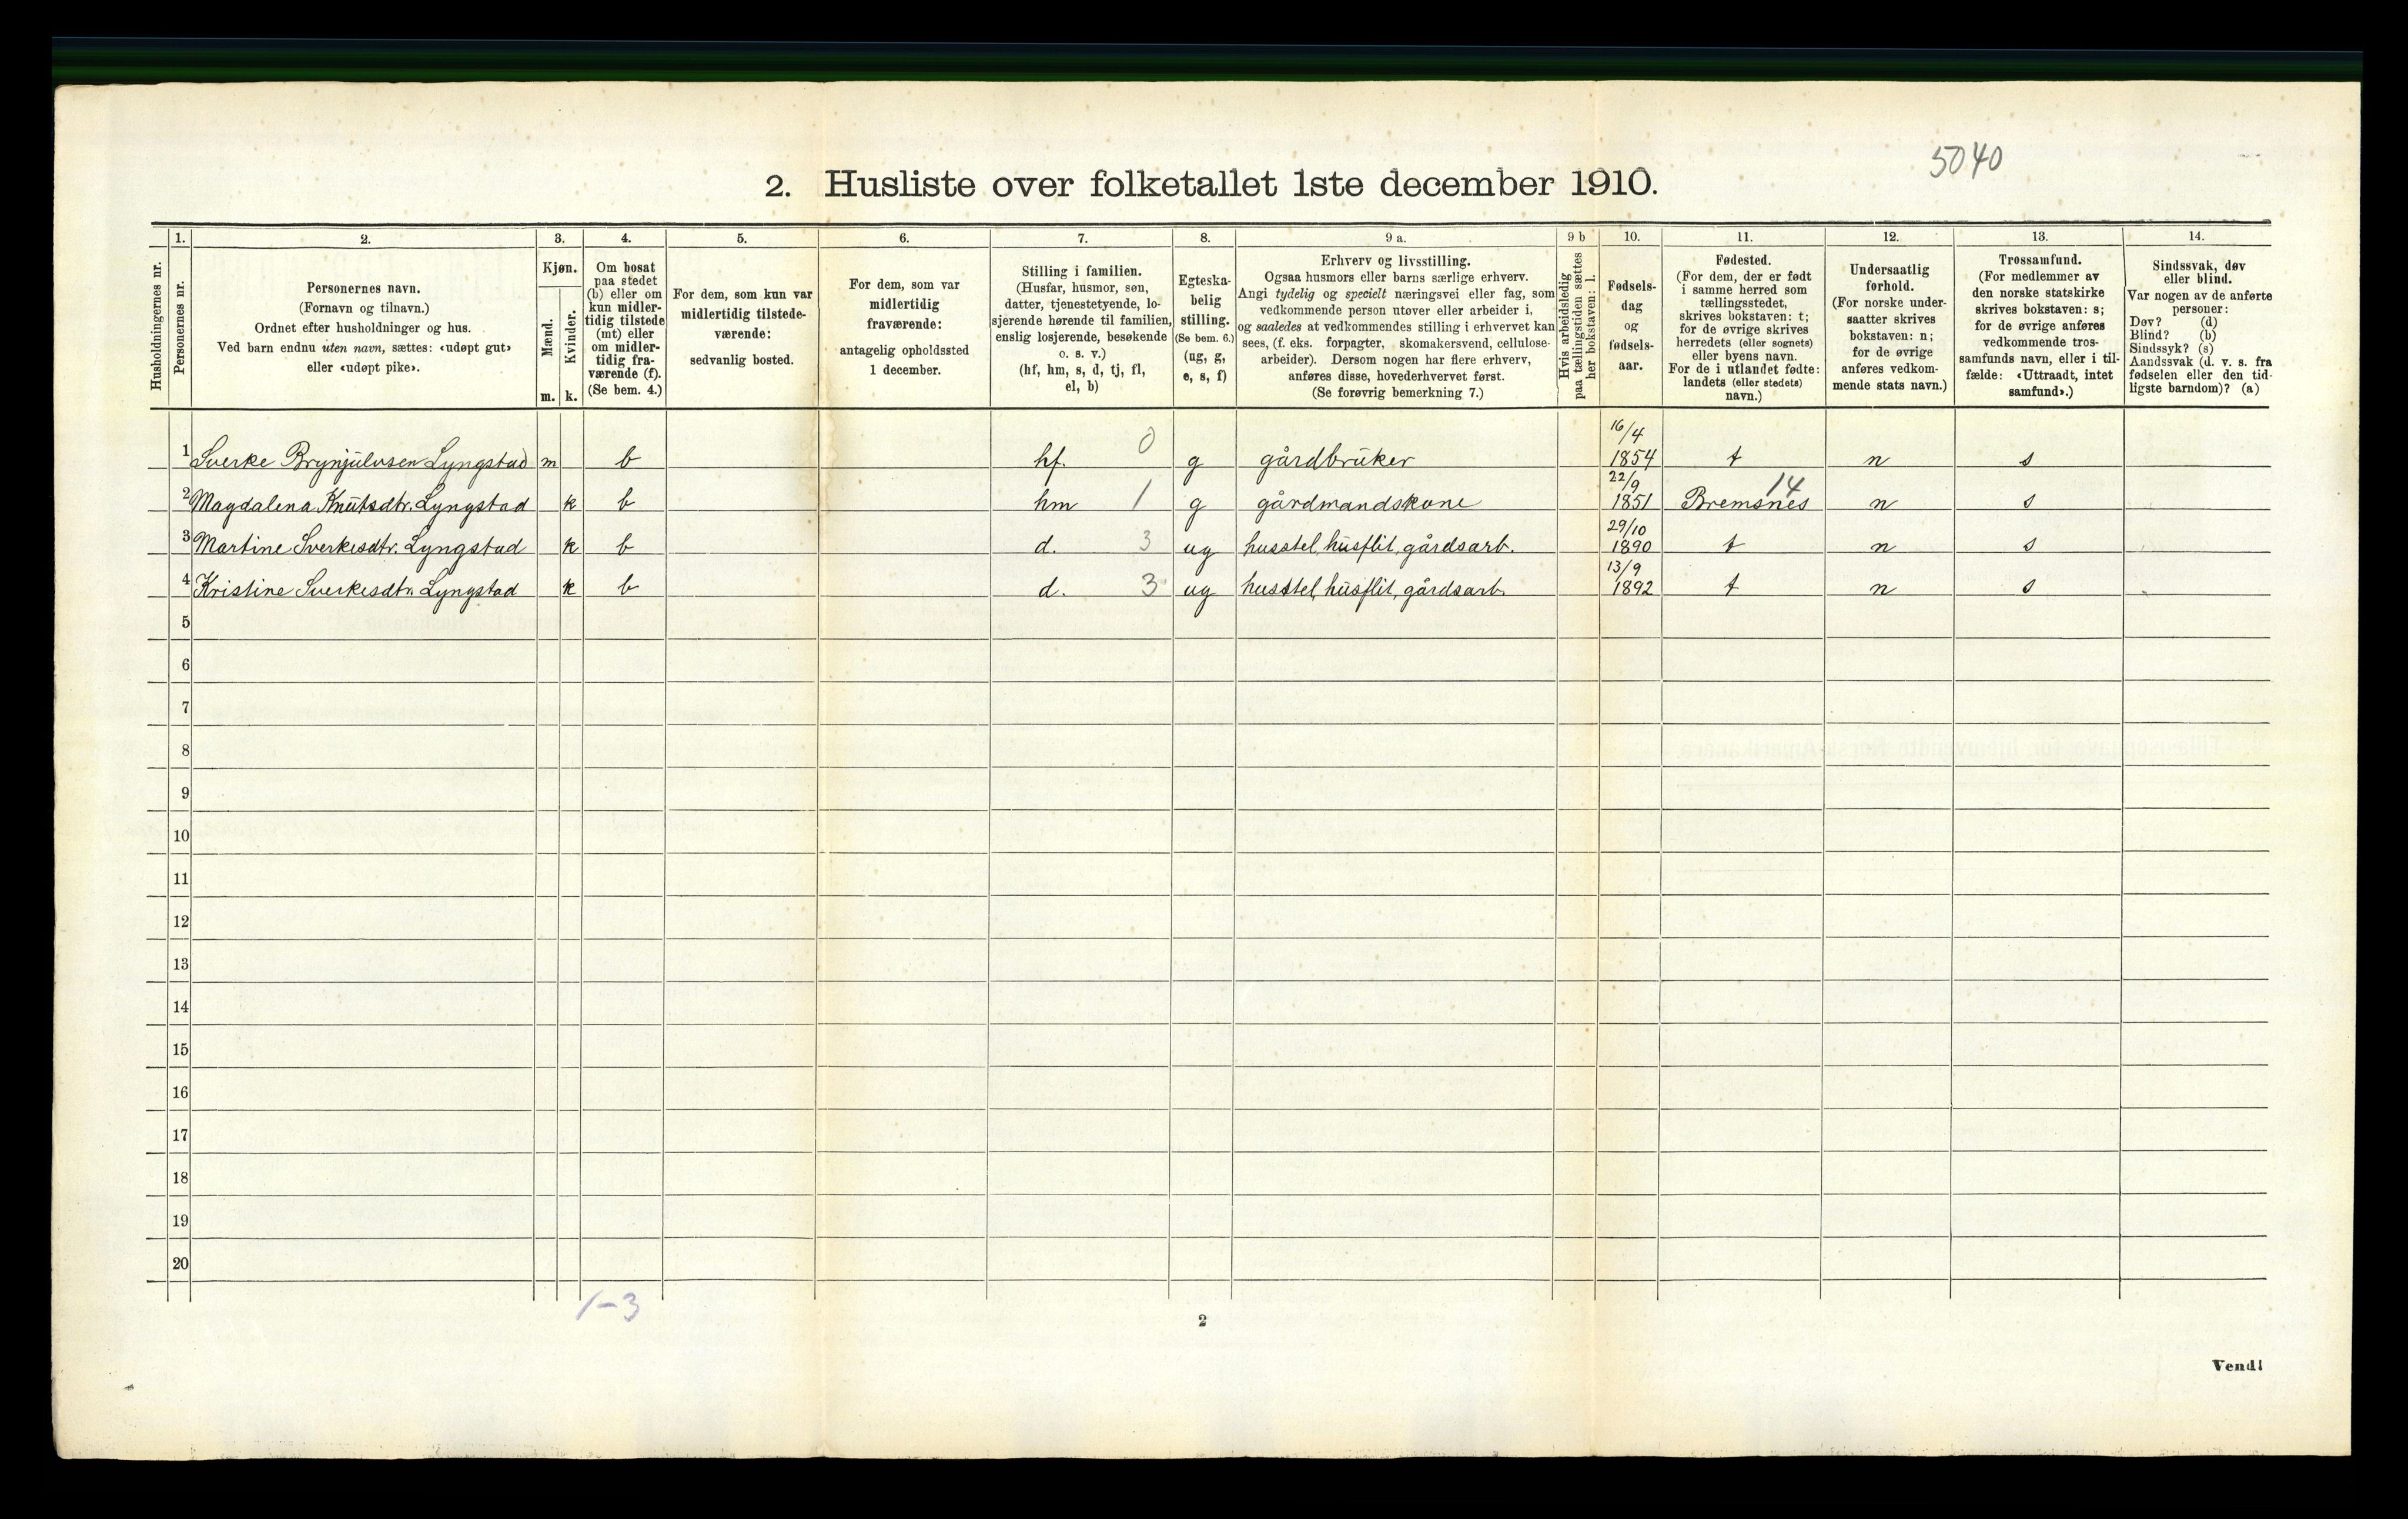 5040
2. Husliste over folketallet 1ste december 1910.
1. 2. 3. 4. 5. 6. 7. 8. 9 a. 9 b 10. 11. 12. 13. 14.
Husholdningernes nr.
Personernes nr.
Personernes navn.
(Fornavn og tilnavn.)
Ordnet efter husholdninger og hus.
Ved barn endnu uten navn, sættes: «udøpt gut»
eller «udøpt pike».
Kjøn.
Mænd.
Kvinder.
m. k.
Om bosat
paa stedet
(b) eller om
kun midler-
tidig tilstede
(mt) eller
om midler-
tidig fra-
værende (f).
(Se bem. 4.)
For dem, som kun var
midlertidig tilstede-
værende:
sedvanlig bosted.
For dem, som var
midlertidig
fraværende:
antagelig opholdssted
1 december.
Stilling i familien.
(Husfar, husmor, søn,
datter, tjenestetyende, lo-
sjerende hørende til familien,
enslig losjerende, besøkende
o. s. v.)
(hf, hm, s, d, tj, fl,
el, b)
Egteska-
belig
stilling.
(Se bem. 6.)
(ug, g,
e, s, f)
Erhverv og livsstilling.
Ogsaa husmors eller barns særlige erhverv.
Angi tydelig og specielt næringsvei eller fag, som
vedkommende person utøver eller arbeider i,
og saaledes at vedkommendes stilling i erhvervet kan
sees, (f. eks. forpagter, skomakersvend, cellulose-
arbeider). Dersom nogen har flere erhverv,
anføres disse, hovederhvervet først.
(Se forøvrig bemerkning 7.)
Hvis arbeidsledig
paa tællingstiden sættes
her bokstaven: l.
Fødsels-
dag
og
fødsels-
aar.
Fødested.
(For dem, der er født
i samme herred som
tællingsstedet,
skrives bokstaven: t;
for de øvrige skrives
herredets (eller sognets)
eller byens navn.
For de i utlandet fødte:
landets (eller stedets)
navn.)
Undersaatlig
forhold.
(For norske under-
saatter skrives
bokstaven: n;
for de øvrige
anføres vedkom-
mende stats navn.)
Trossamfund.
(For medlemmer av
den norske statskirke
skrives bokstaven: s;
for de øvrige anføres
vedkommende tros-
samfunds navn, eller i til-
fælde: «Uttraadt, intet
samfund».)
Sindssvak, døv
eller blind.
Var nogen av de anførte
personer:
Døv? (d)
Blind? (b)
Sindssyk? (s)
Aandssvak (d. v. s. fra
fødselen eller den tid-
ligste barndom)? (a)
1 Sverke Brynjulvsen Lyngstad m b hf. 0 g gårdbrüker 16/4 1854 t n s
2 Magdalena Knütsdtr. Lyngstad k b hm 1 g gårdmandskone 22/9 1851 Bremsnes 14 n s
3 Martine Sverkesdtr. Lyngstad k b d. 3 ug husstel, hüsflit, gårdsarb. 29/10 1890 t n s
4 Kristine Sverkesdtr. Lyngstad k b d. 3 ug husstel, hüsflit, gårdsarb. 13/9 1892 t n s
5
6
7
8
9
10
11
12
13
14
15
16
17
18
19
20
1-3
2
Vend!